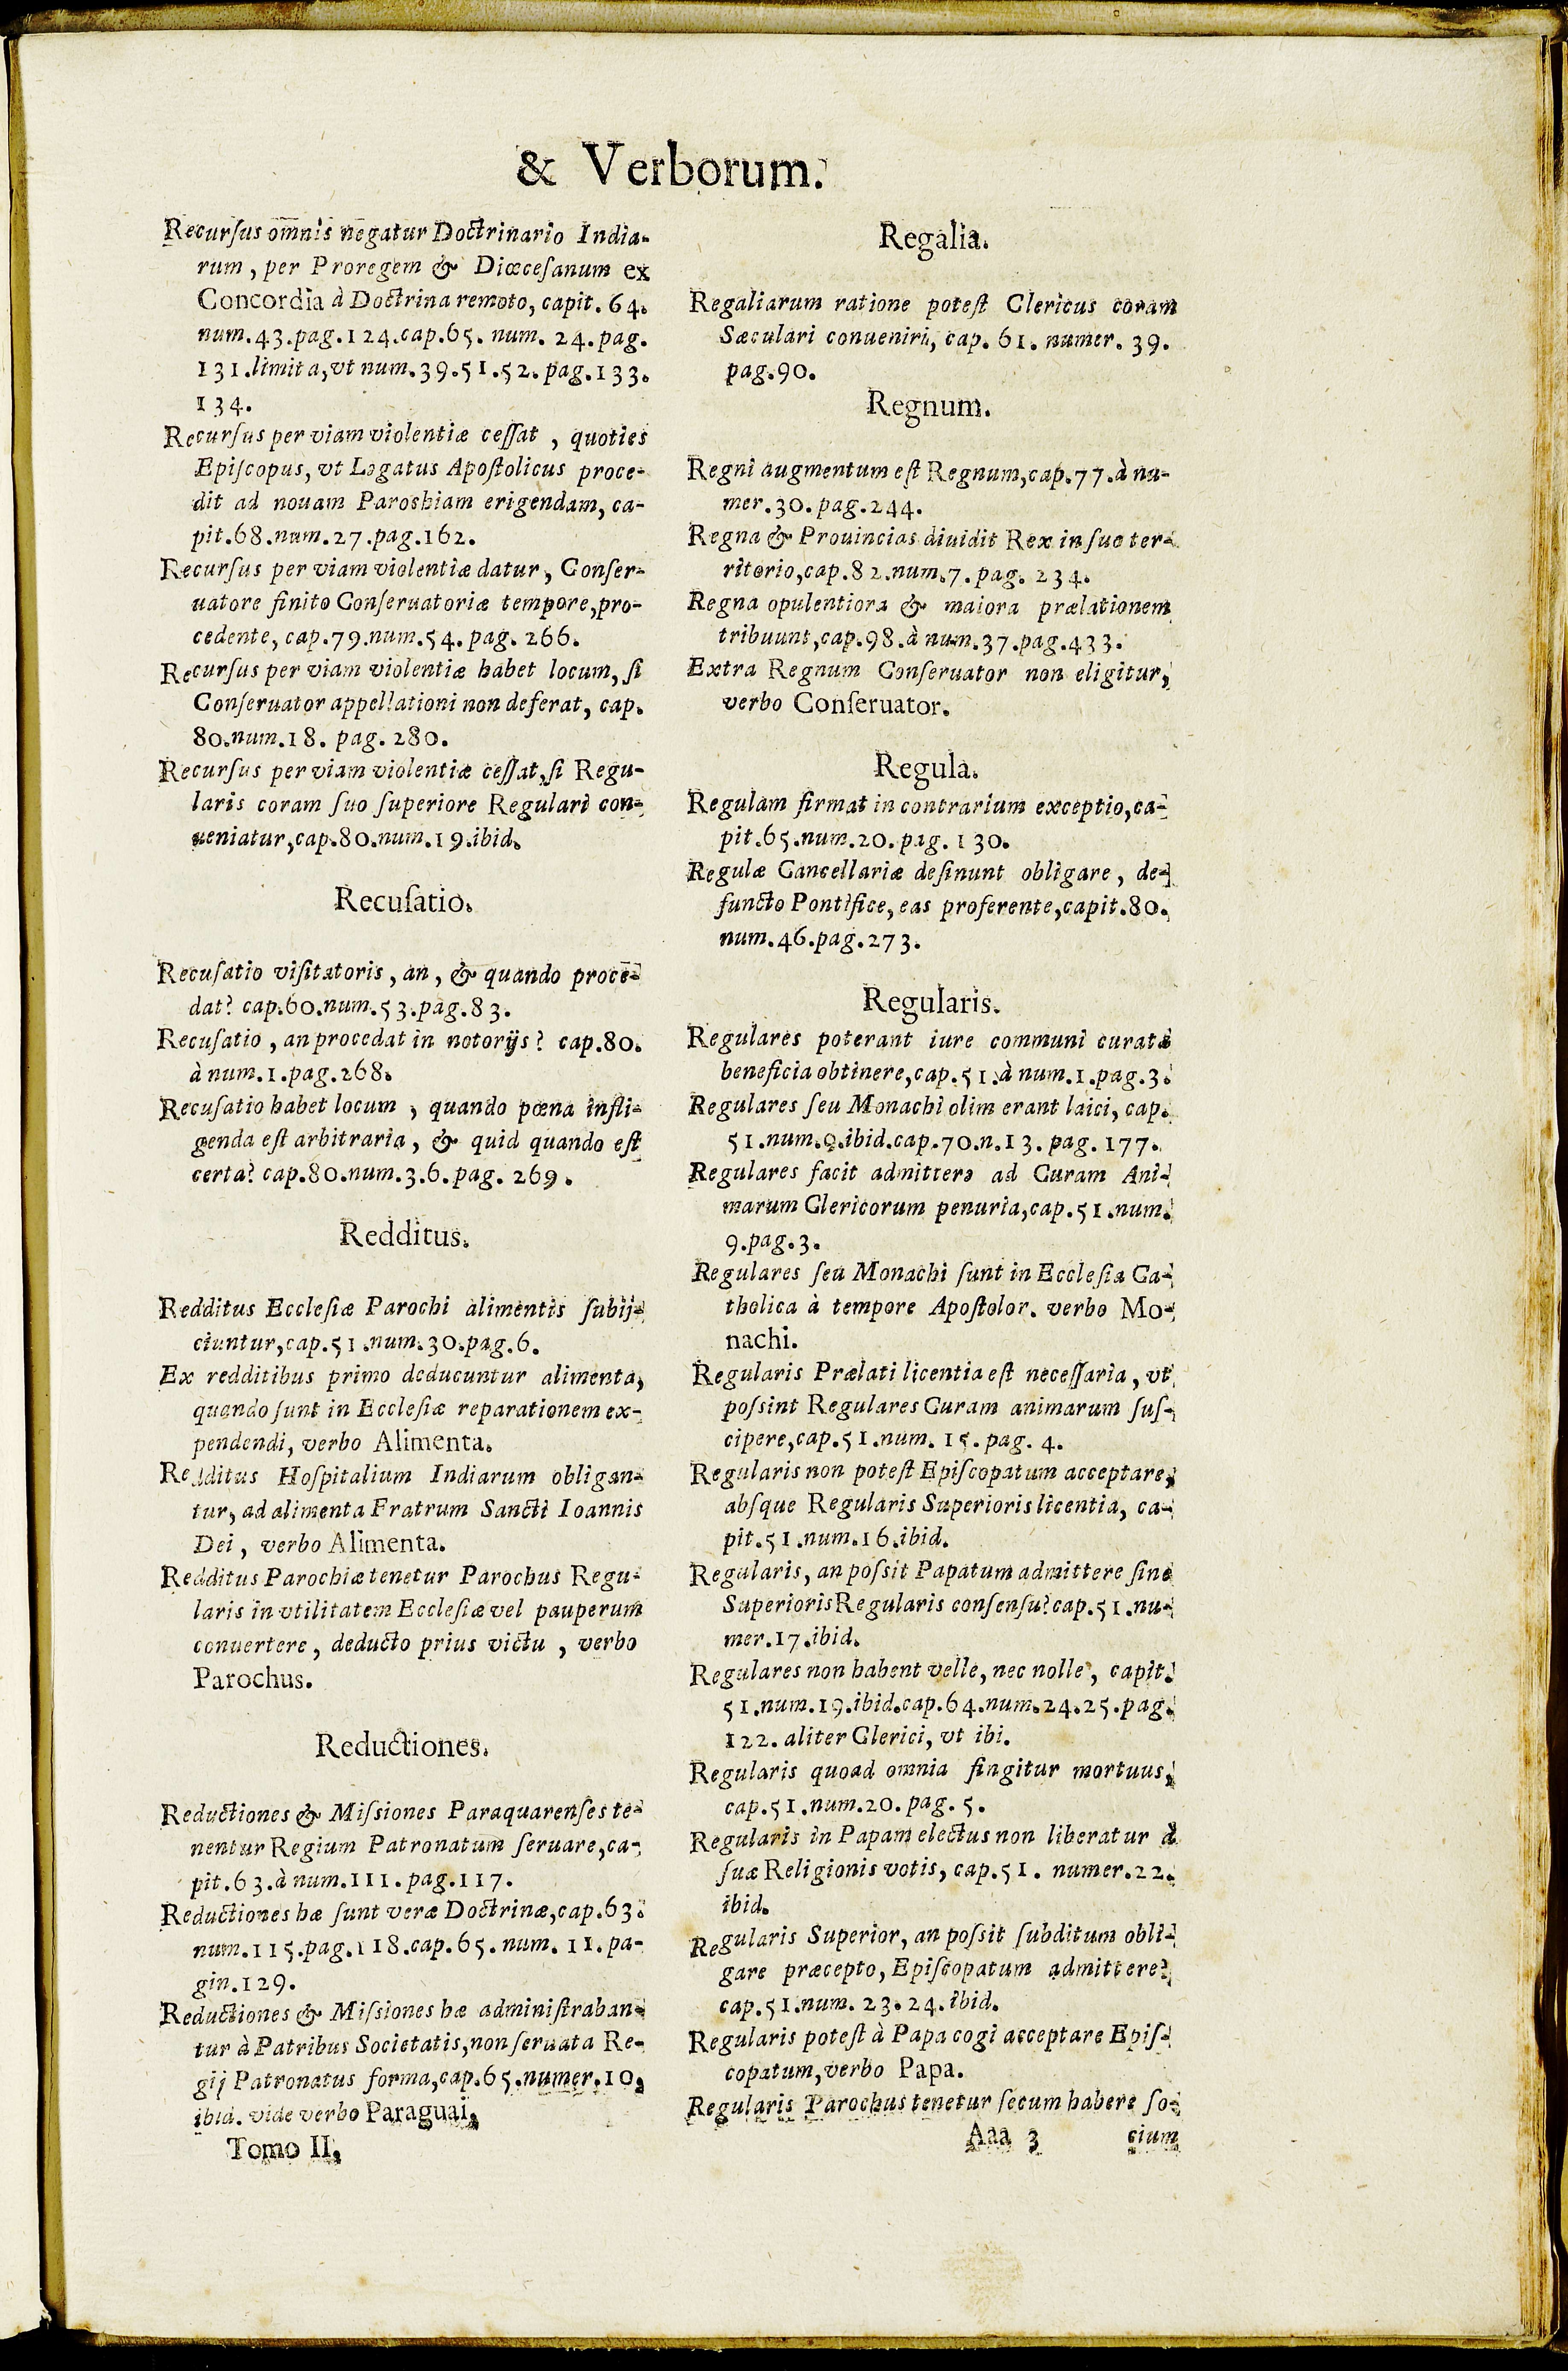 & Verborum.
Recurſus om̅nis negatur Doctrinario India-
rum, per Proregem & Diœceſanum ex
Concordia à Doctrina remoto, capit. 64.
num.43.pag.124.cap.65. num. 24.pag.
131.limita, vt num.39.51.52.pag.133.
134.
Recurſus per viam violentiæ ceſſat, quoties
Epiſcopus, vt Legatus Apoſtolicus proce-
dit ad nouam Paroshiam erigendam, ca-
pit.68.num.27.pag.162.
Recurſus per viam violentiæ datur, Conſer-
uatore finito Conſeruatoriæ tempore, pro-
cedente, cap.79.num.54. pag. 266.
Recurſus per viam violentiæ habet locum, ſi
Conſeruator appellationi non deferat, cap.
80.num.18. pag. 280.
Recurſus per viam violentiæ ceſſat, ſi Regu-
laris coram ſuo ſuperiore Regulari con-
ueniatur, cap.80.num.19.ibid.
Recuſatio.
Recuſatio viſitatoris, an, & quando proce-
dat? cap.60.num.53.pag.83.
Recuſatio, an procedat in notorijs? cap.80.
à num.1.pag.268.
Recuſatio habet locum, quando pœna infli-
genda eſt arbitraria, & quid quando eſt
certa? cap.80.num.3.6.pag. 269.
Redditus.
Redditus Eccleſiæ Parochi alimentis ſubij-
ciuntur, cap.51.num.30.pag.6.
Ex redditibus primo deducuntur alimenta,
quando ſunt in Eccleſiæ reparationem ex-
pendendi, verbo Alimenta.
Redditus Hoſpitalium Indiarum obligan-
tur, ad alimenta Fratrum Sancti Ioannis
Dei, verbo Alimenta.
Redditus Parochiæ tenetur Parochus Regu-
laris in vtilitatem Eccleſiæ vel pauperum
conuertere, deducto prius victu, verbo
Parochus.
Reductiones.
Reductiones & Miſsiones Paraquarenſes te-
nentur Regium Patronatum ſeruare, ca-
pit.63.à num.111.pag.117.
Reductiones hæ ſunt veræ Doctrinæ, cap.63.
num.115.pag.118.cap.65. num. 11. pa-
gin.129.
Reductiones & Miſsiones hæ adminiſtraban-
tur à Patribus Societatis, non ſeruata Re-
gij Patronatus forma, cap.65.numer.10,
ibid. vide verbo Paraguai.
Tomo II.
Regalia.
Regaliarum ratione poteſt Clericus coram
Sæculari conueniri, cap. 61. numer. 39.
pag.90.
Regnum.
Regni augmentum eſt Regnum, cap.77.à nu-
mer.30.pag.244.
Regna & Prouincias diuidit Rex in ſuo ter-
ritorio, cap.82.num.7. pag. 234.
Regna opulentiora & maiora prælationem
tribuunt, cap.98.à num.37.pag.433.
Extra Regnum Conſeruator non eligitur,
verbo Conſeruator.
Regula.
Regulam firmat in contrarium exceptio, ca-
pit.65.num.20.pag. 130.
Regulæ Cancellariæ deſinunt obligare, de-
functo Pontifice, eas proferente, capit.80.
num.46.pag.273.
Regularis.
Regulares poterant iure communi curata
beneficia obtinere, cap.51.à num.1.pag.3.
Regulares ſeu Monachi olim erant laici, cap.
51.num.9.ibid.cap.70.n.13. pag. 177.
Regulares facit admittere ad Curam Ani-
marum Clericorum penuria, cap.51.num.
9.pag.3.
Regulares ſeu Monachi ſunt in Eccleſia Ca-
tholica à tempore Apoſtolor. verbo Mo-
nachi.
Regularis Prælati licentia eſt neceſſaria, vt
poſsint Regulares Curam animarum ſuſ-
cipere, cap.51.num. 15.pag. 4.
Regularis non poteſt Epiſcopatum acceptare,
abſque Regularis Superioris licentia, ca-
pit.51.num.16.ibid.
Regularis, an poſsit Papatum admittere ſine
Superioris Regularis conſenſu? cap.51.nu-
mer.17.ibid.
Regulares non habent velle, nec nolle, capit.
51.num.19.ibid.cap.64.num.24.25.pag.
122. aliter Clerici, vt ibi.
Regularis quoad omnia fingitur mortuus,
cap.51.num.20. pag. 5.
Regularis in Papam electus non liberatur à
ſuæ Religionis votis, cap.51. numer.22.
ibid.
Regularis Superior, an poſsit ſubditum obli-
gare præcepto, Epiſcopatum admittere?
cap.51.num. 23.24.ibid.
Regularis poteſt à Papa cogi acceptare Epiſ-
copatum, verbo Papa.
Regularis Parochus tenetur ſecum habere ſo-
Aaa 3 cium